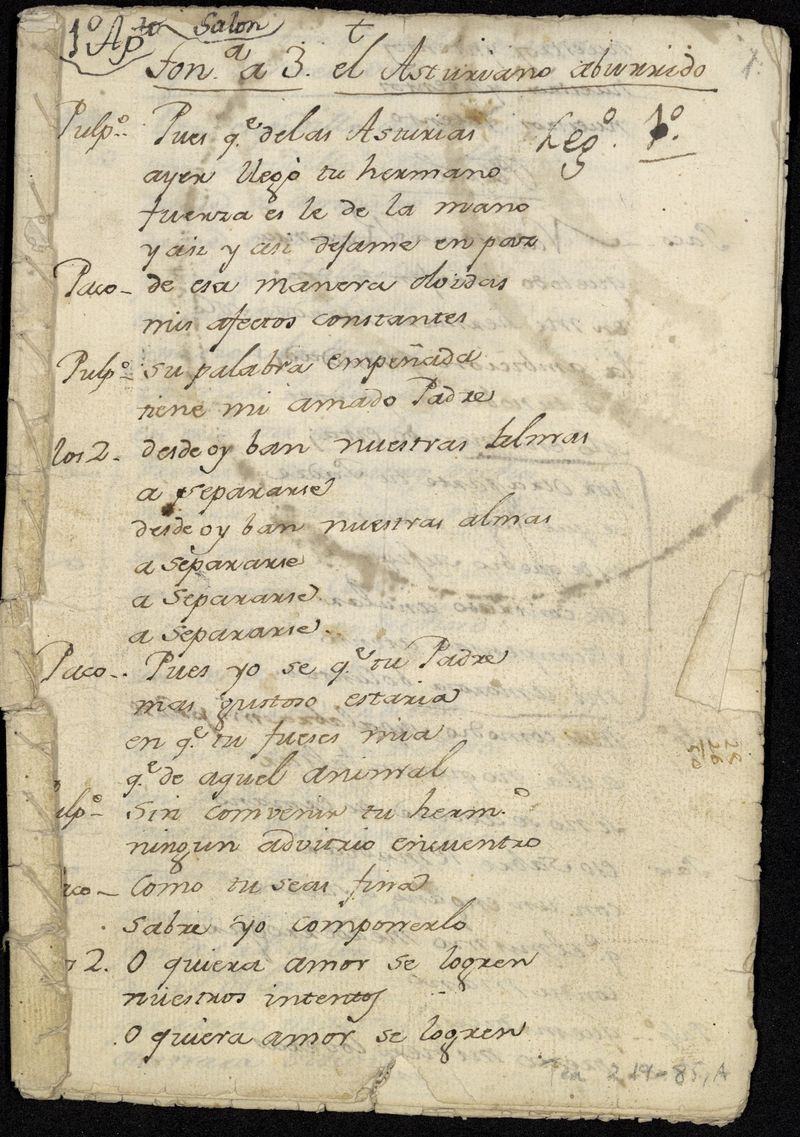 1º Apto Salon
t
Ton.ª a 3. el Asturiano aburrido
1
Pulpº Pues q.e de las Asturias Legº. 1º.
ayer llegò tu hermano
fuerza es le de la mano
y asi y asi dejame en paz
Paco- de esa manera olvidas
mis afectos constantes
Pulpº su palabra empeñada
tiene mi amado Padre
los 2. desde oy ban nuestras almas
a separarse
desde oy ban nuestras almas
a separarse
a separarse
a separarse.
Paco-. Pues yo se q.e tu Padre
mas gustoso estaria
en q.e tu fueses mia
q.e de aquel animal
ulpº- sin convenir tu herm.º
ningun advitrio encuentro
aco- Como tu seas fina
sabre yo componerlo
s 2. O quiera amor se logren
nuestros intentos
O quiera amor se logren
Tea 219-85, A